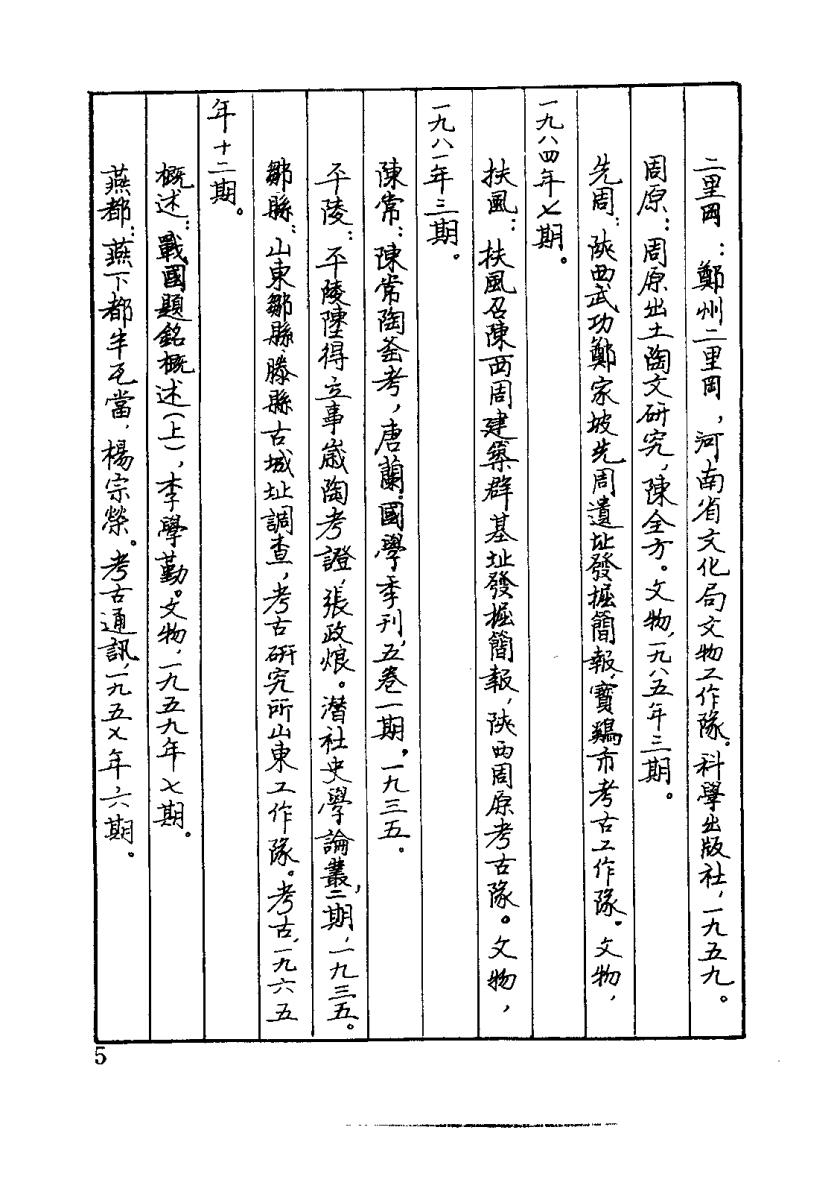 二里岡：鄭州二里岡，河南省文化局文物工作隊。科學出版社，一九五九。
周原：周原出土陶文研究，陳全方。文物，一九八五年三期。
先周：陝西武功鄭家坡先周遺址發掘簡報，寶鷄市考古工作隊。文物，
一九八四年七期。
扶風：扶風召陳西周建築群基址發掘簡報，陝西周原考古隊。文物，
一九八一年三期。
陳常：陳常陶釜考，唐蘭。國學季刊，五卷一期，一九三五。
平陵：平陵陻得立事歲陶考證，張政烺。潛社史學論叢，二期，一九三五。
鄒縣：山東鄒縣、滕縣古城址調查，考古研究所山東工作隊。考古，一九六五
年十二期。
概述：戰國題銘概述（上），李學勤。文物，一九五九年七期。
燕都：燕下都半瓦當，楊宗榮。考古通訊，一九五七年六期。
5